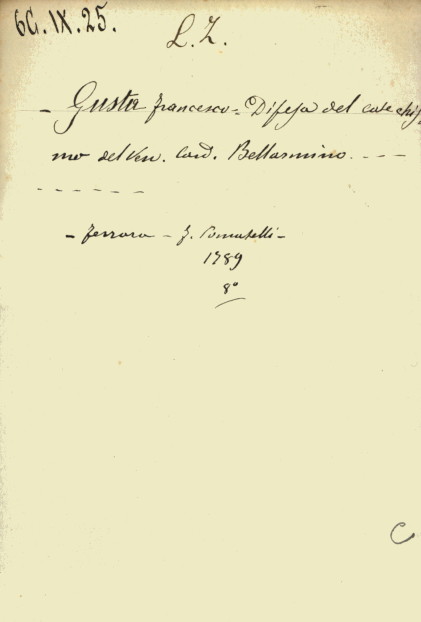 6G.IX.25.
L.Z.
- Gusta Francesco - Difesa del catechis-
mo del Ven. Card. Bellarmino. - - -
- - - - - -
- Ferrara - F. Pomatelli -
1789
8°
C